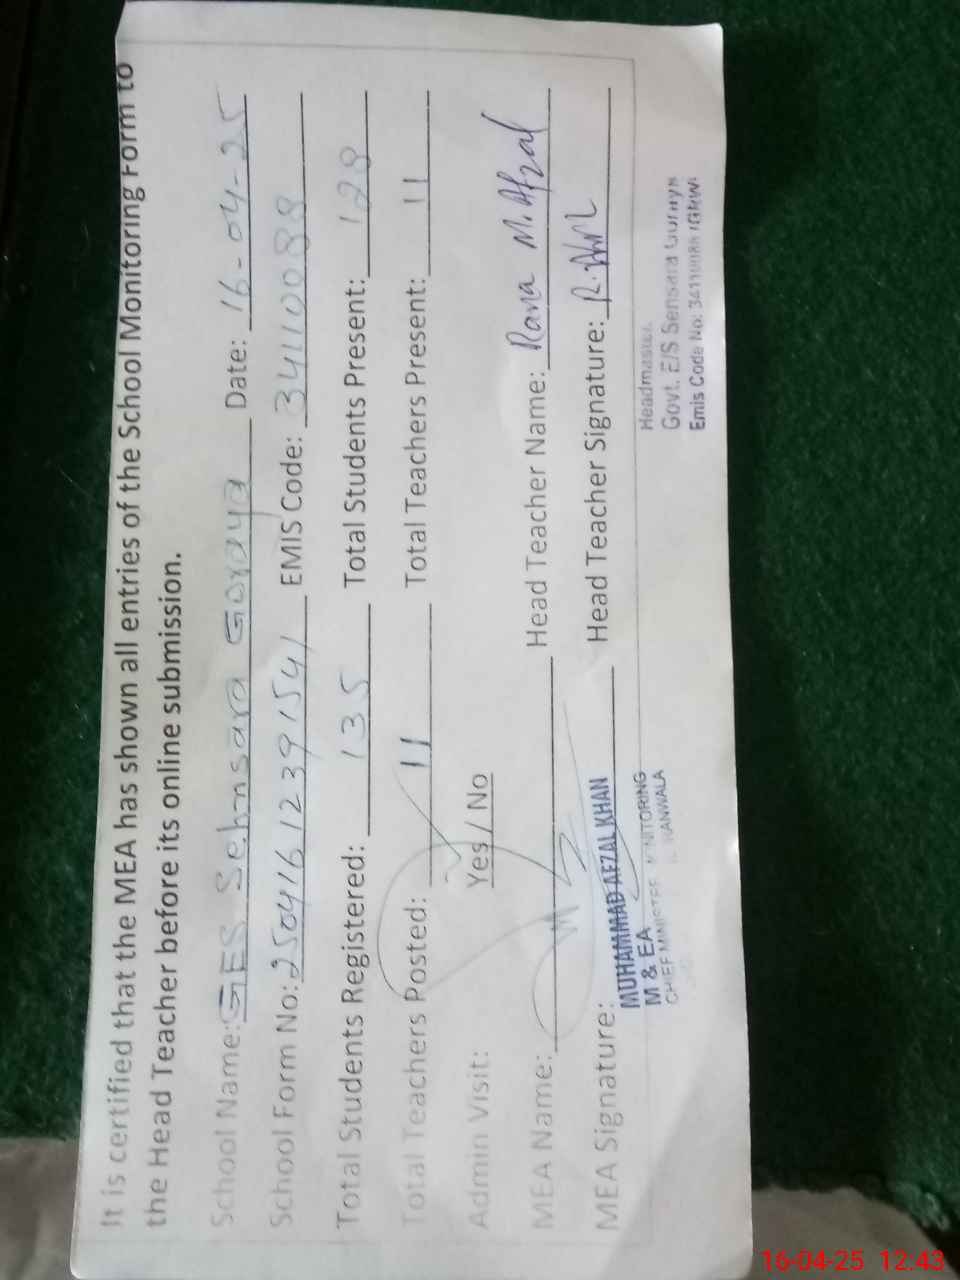 It is certified that the MEA has shown all entries of the School Monitoring Form to
the Head Teacher before its online submission.
School Name: GES Sehnsara Goraya Date: 16-04-25
School Form No: 2504161239154 / EMIS Code: 34110088
Total Students Registered: 135 Total Students Present: 128
Total Teachers Posted: 11 Total Teachers Present: 11
Admin Visit: Yes / No
MEA Name: Head Teacher Name: Rana M. Afzal
MEA Signature: Head Teacher Signature:
MUHAMMAD AFZAL KHAN
M & EA
CHIEF MINISTER
Headmaster
Govt. E/S Sensara
Emis Code No:
16-04-25 12:43